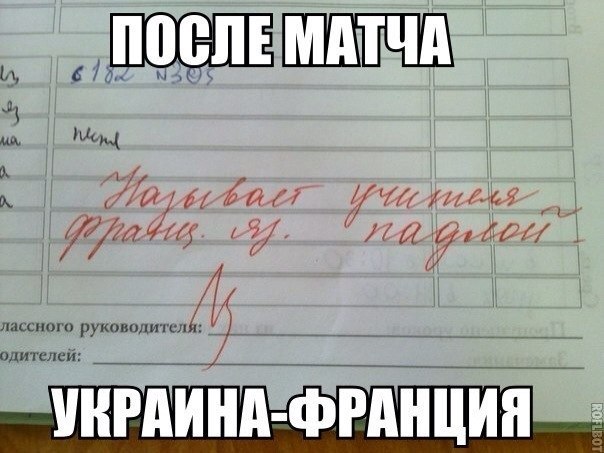 ПОСЛЕ МАТЧА
с 182 N3
песня
Называет учителя
франц. яз. падлой
лассного руководителя:
одителей:
УКРАИНА-ФРАНЦИЯ
ROFLBOT